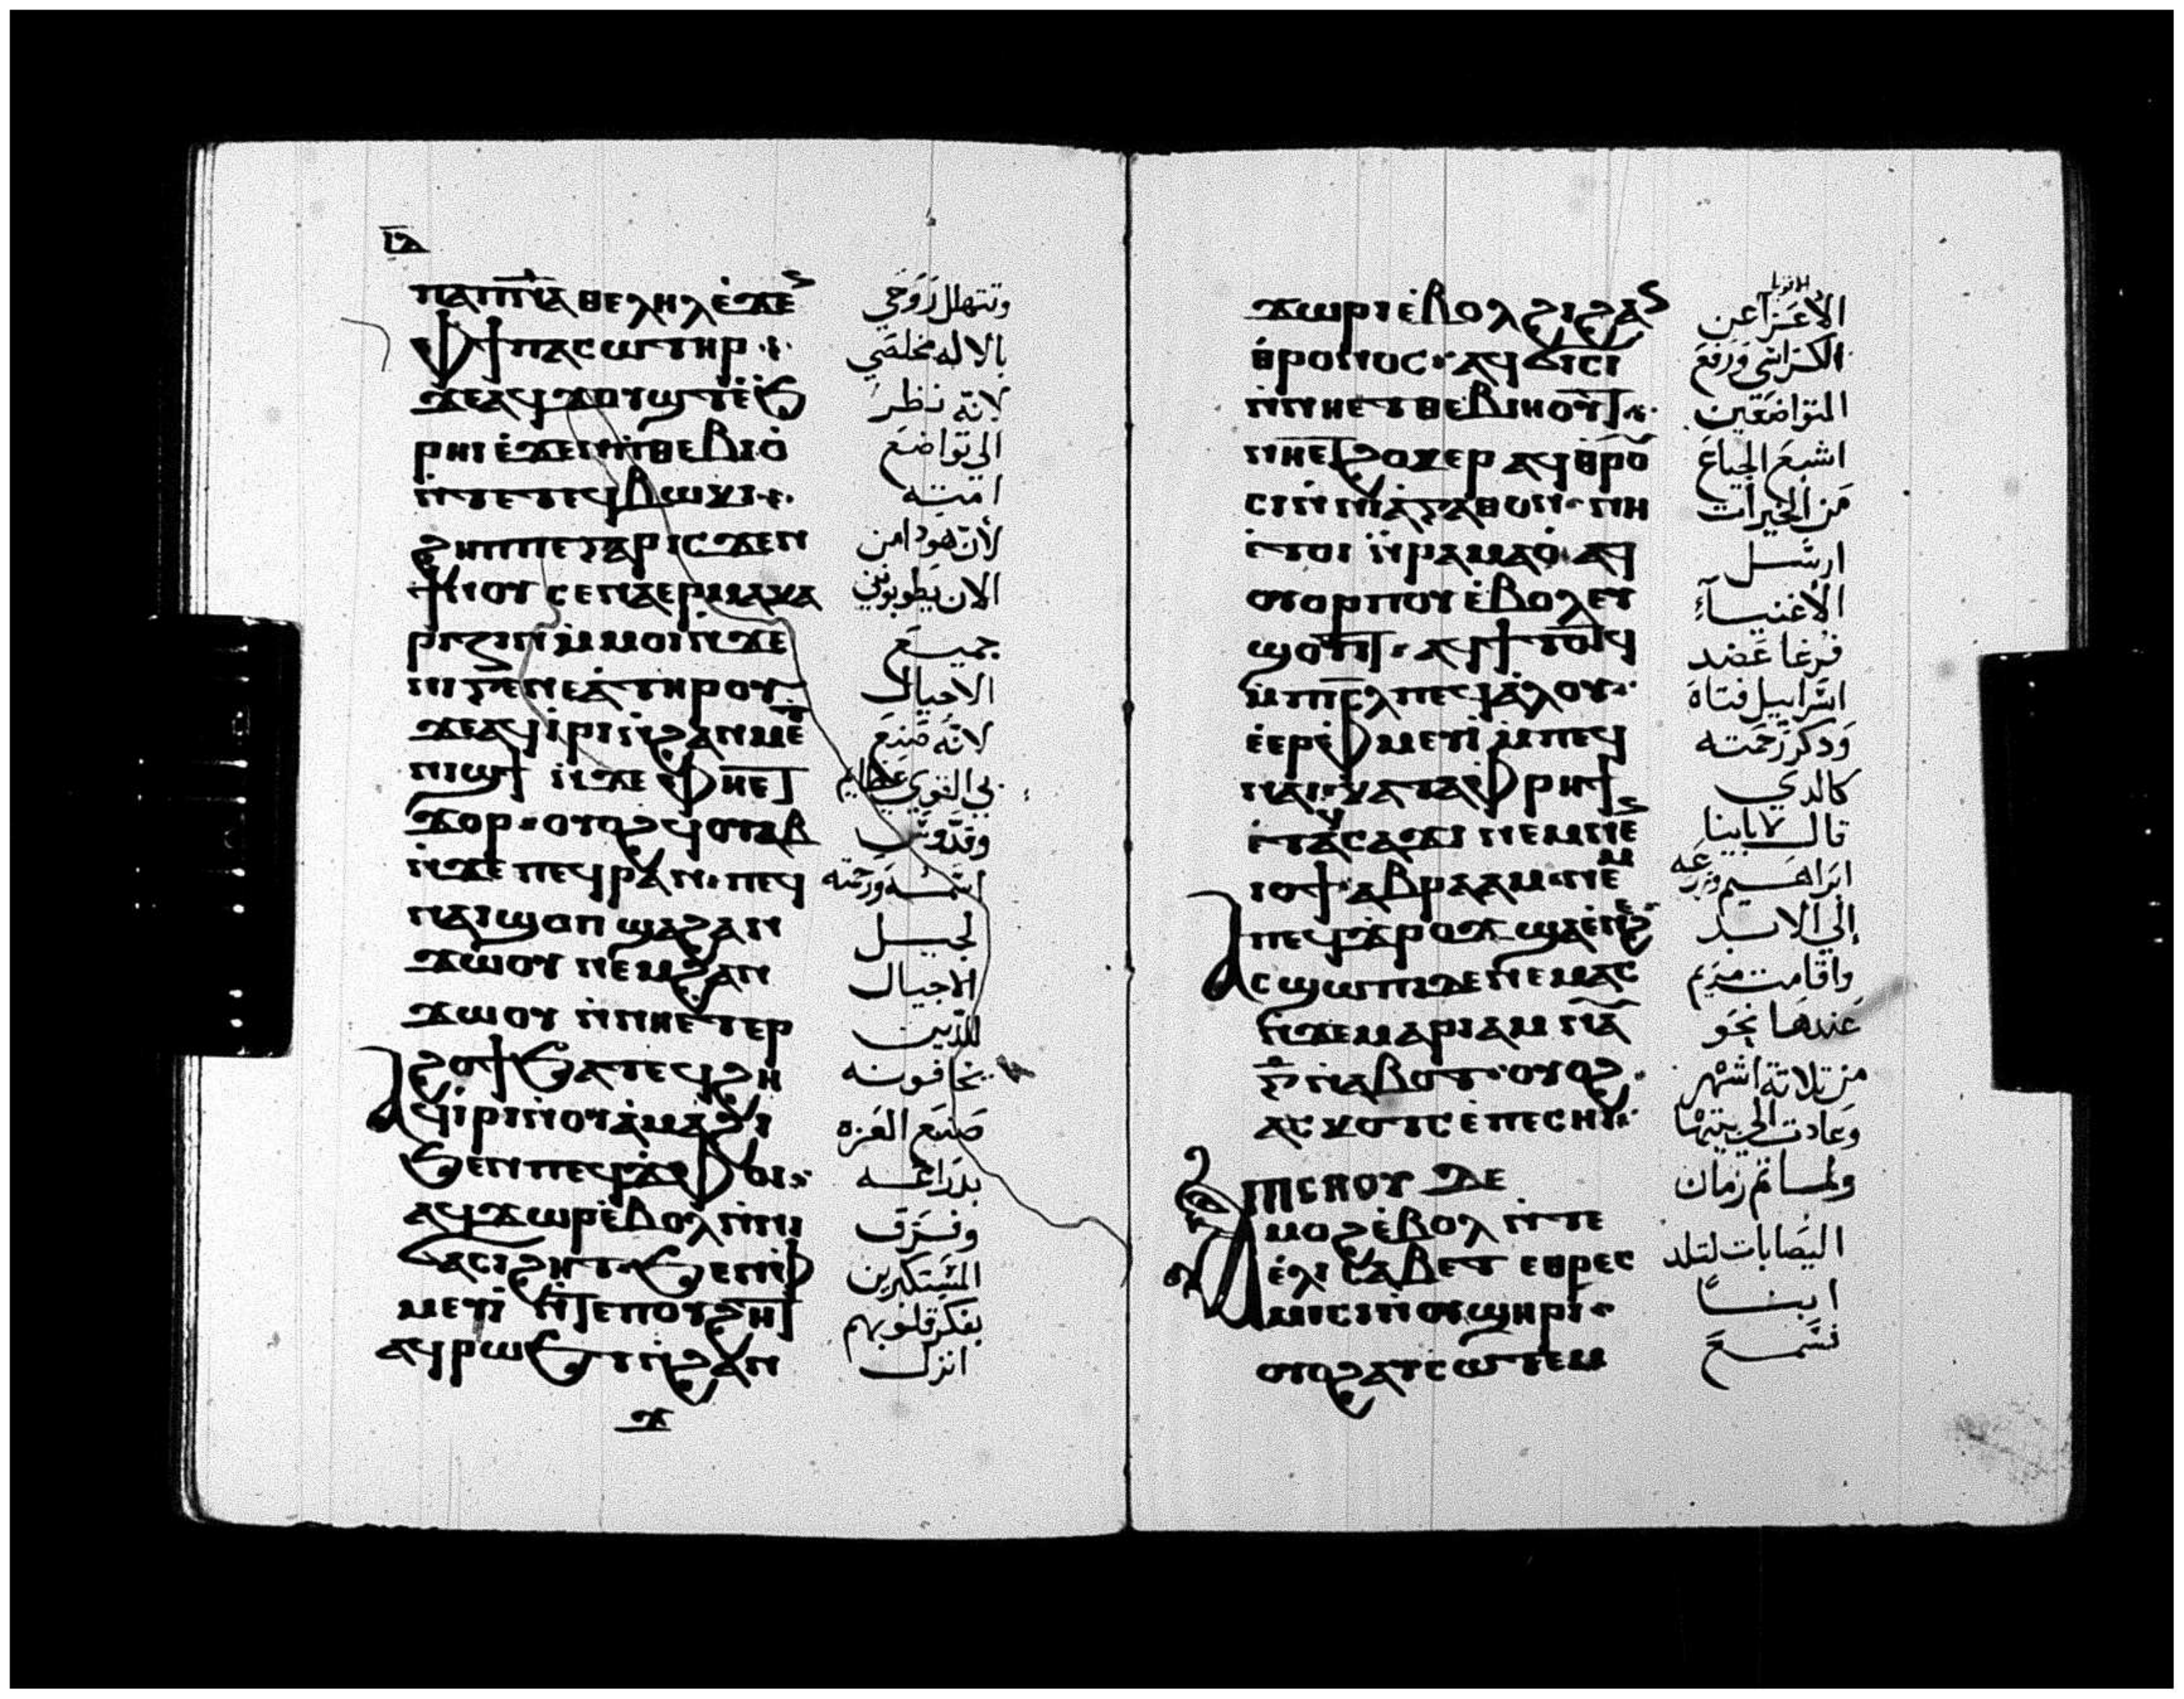 ⲓⲇ
ⲡⲁⲡⲛ̅ⲁ ⲑⲉⲗⲏⲗ ⲉ̀ϫⲉ
ⲫϯ ⲡⲁⲥⲱⲧⲏⲣ
ϫⲉⲁϥϫⲟⲩϣⲧ ⲉ̀ϧ
ⲣⲏⲓ ⲉ̀ϫⲉⲛⲡ̀ⲑⲉⲃⲓⲟ̀
ⲛ̀ⲧⲉⲧⲉϥⲃⲱⲕⲓ
ϩⲏⲡⲡⲉ ⲅⲁⲣ ⲓⲥϫⲉⲛ
ϯⲛⲟⲩ ⲥⲉⲛⲁⲉⲣⲙⲁⲕⲁ
ⲣⲓⲍⲓⲛ ⲙ̀ⲙⲟⲓ ⲛ̀ϫⲉ
ⲛⲓⲅⲉⲛⲉⲁ̀ ⲧⲏⲣⲟⲩ
ϫⲉⲁϥⲓ̀ⲣⲓ ⲛⲓ ⲛ̀ϩⲁⲛⲙⲉⲧ
ⲛⲓϣϯ ⲛ̀ϫⲉ ⲫⲏⲉⲧ
ϫⲟⲣ ⲟⲩⲟϩ ϥⲟⲩⲁⲃ
ⲛ̀ϫⲉ ⲡⲉϥⲣⲁⲛ ⲡⲉϥ
ⲛⲁⲓ ϣⲟⲡ ϣⲁϩⲁⲛ
ϫⲱⲟⲩ ⲛⲉⲙϩⲁⲛ
ϫⲱⲟⲩ ⲛ̀ⲛⲏⲉⲧⲉⲣ
ϩⲟϯ ϧⲁⲧⲉϥϩⲏ
ⲁϥⲓ̀ⲣⲓ ⲛ̀ⲟⲩⲁ̀ⲙⲁϩⲓ
ϧⲉⲛⲡⲉϥϫⲫⲟⲓ
ⲁϥϫⲱⲣ ⲉ̀ⲃⲟⲗ ⲛ̀ⲛⲓ
ϭⲁⲥⲓϩⲏⲧ ϧⲉⲛⲫ
ⲙⲉⲩⲓ̀ ⲛ̀ⲧⲉⲡⲟⲩϩⲏⲧ
ⲁϥⲣⲱϧⲧ ⲛ̀ϩⲁⲛ
ϫ
وتتهلل روحي
بالاله مخلصي
لانه نظر
الي تواضع
امته
لأن هودا من
الان يطوبوني
جميع
الاجيال
لانه صنع
بي القوي عظايم
وقدوس
اسمه ورحمته
لجيل
الاجيال
للذين
يخافونه
صنع العزه
بدراعه
وفرق
المستكبرين
بفكر قلوبهم
انزل
ϫⲱⲣⲓ ⲉ̀ⲃⲟⲗ ϩⲓϩⲁⲛ
ⲑⲣⲟⲛⲟⲥ ⲁϥϭⲓⲥⲓ
ⲛ̀ⲛⲏⲉⲧⲑⲉⲃⲓⲏⲟⲩⲧ
ⲛⲏⲉⲧϩⲟⲕⲉⲣ ⲁϥⲑⲣⲟⲩ
ⲥⲓ ⲛ̀ⲛⲓⲁ̀ⲅⲁⲑⲟⲛ ⲛⲏ
ⲉ̀ⲧⲟⲓ ⲛ̀ⲣⲁⲙⲁⲟ̀ ⲁϥ
ⲟⲩⲟⲣⲡⲟⲩ ⲉ̀ⲃⲟⲗ ⲉⲩ
ϣⲟⲩⲓⲧ ⲁϥϯⲧⲟⲧϥ
ⲙ̀ⲡⲓⲥⲗ ⲡⲉϥⲁ̀ⲗⲟⲩ
ⲉ̀ⲉⲣⲫ̀ⲙⲉⲩⲓ̀ ⲙ̀ⲡⲉϥ
ⲛⲁⲓ ⲕⲁⲧⲁⲫⲣⲏϯ
ⲉ̀ⲧⲁϥⲥⲁϫⲓ ⲛⲉⲙⲛⲉⲛ
ⲓⲟϯ ⲁⲃⲣⲁⲁⲙ ⲛⲉⲙ
ⲡⲉϥϫⲣⲟϫ ϣⲁⲉ̀ⲛⲉϩ
ⲁⲥϣⲱⲡⲓ ⲇⲉ ⲛⲉⲙⲁⲥ
ⲛ̀ϫⲉⲙⲁⲣⲓⲁⲙ ⲛⲁ
ⲅ̅ ⲛ̀ⲁⲃⲟⲧ ⲟⲩⲟϩ
ⲁⲥⲕⲟⲧⲥ ⲉ̀ⲡⲉⲥⲏⲓ
ⲁⲡⲥⲏⲟⲩ ⲇⲉ
ⲙⲟϩ ⲉ̀ⲃⲟⲗ ⲛ̀ⲧⲉ
ⲉ̀ⲗⲓⲥⲁⲃⲉⲧ ⲉⲑⲣⲉⲥ
ⲙⲓⲥⲓ ⲛ̀ⲟⲩϣⲏⲣⲓ
ⲟⲩⲟϩ ⲁⲩⲥⲱⲧⲉⲙ
الأعزا عن
الكراسي ورفع
المتواضعين
اشبع الجياع
من الخيرات
ارسل
الأغنيآء
فرغا عضد
اسراييل فتاه
ودكر رحمته
كالدي
قال لابآينا
ابراهيم وزرعه
إلي الابد
واقامت مريم
عندها نحو
من تلاتة اشهر
وعادت الي بيتها
ولما تم زمان
اليصابات لتلد
ابنا
فسمع